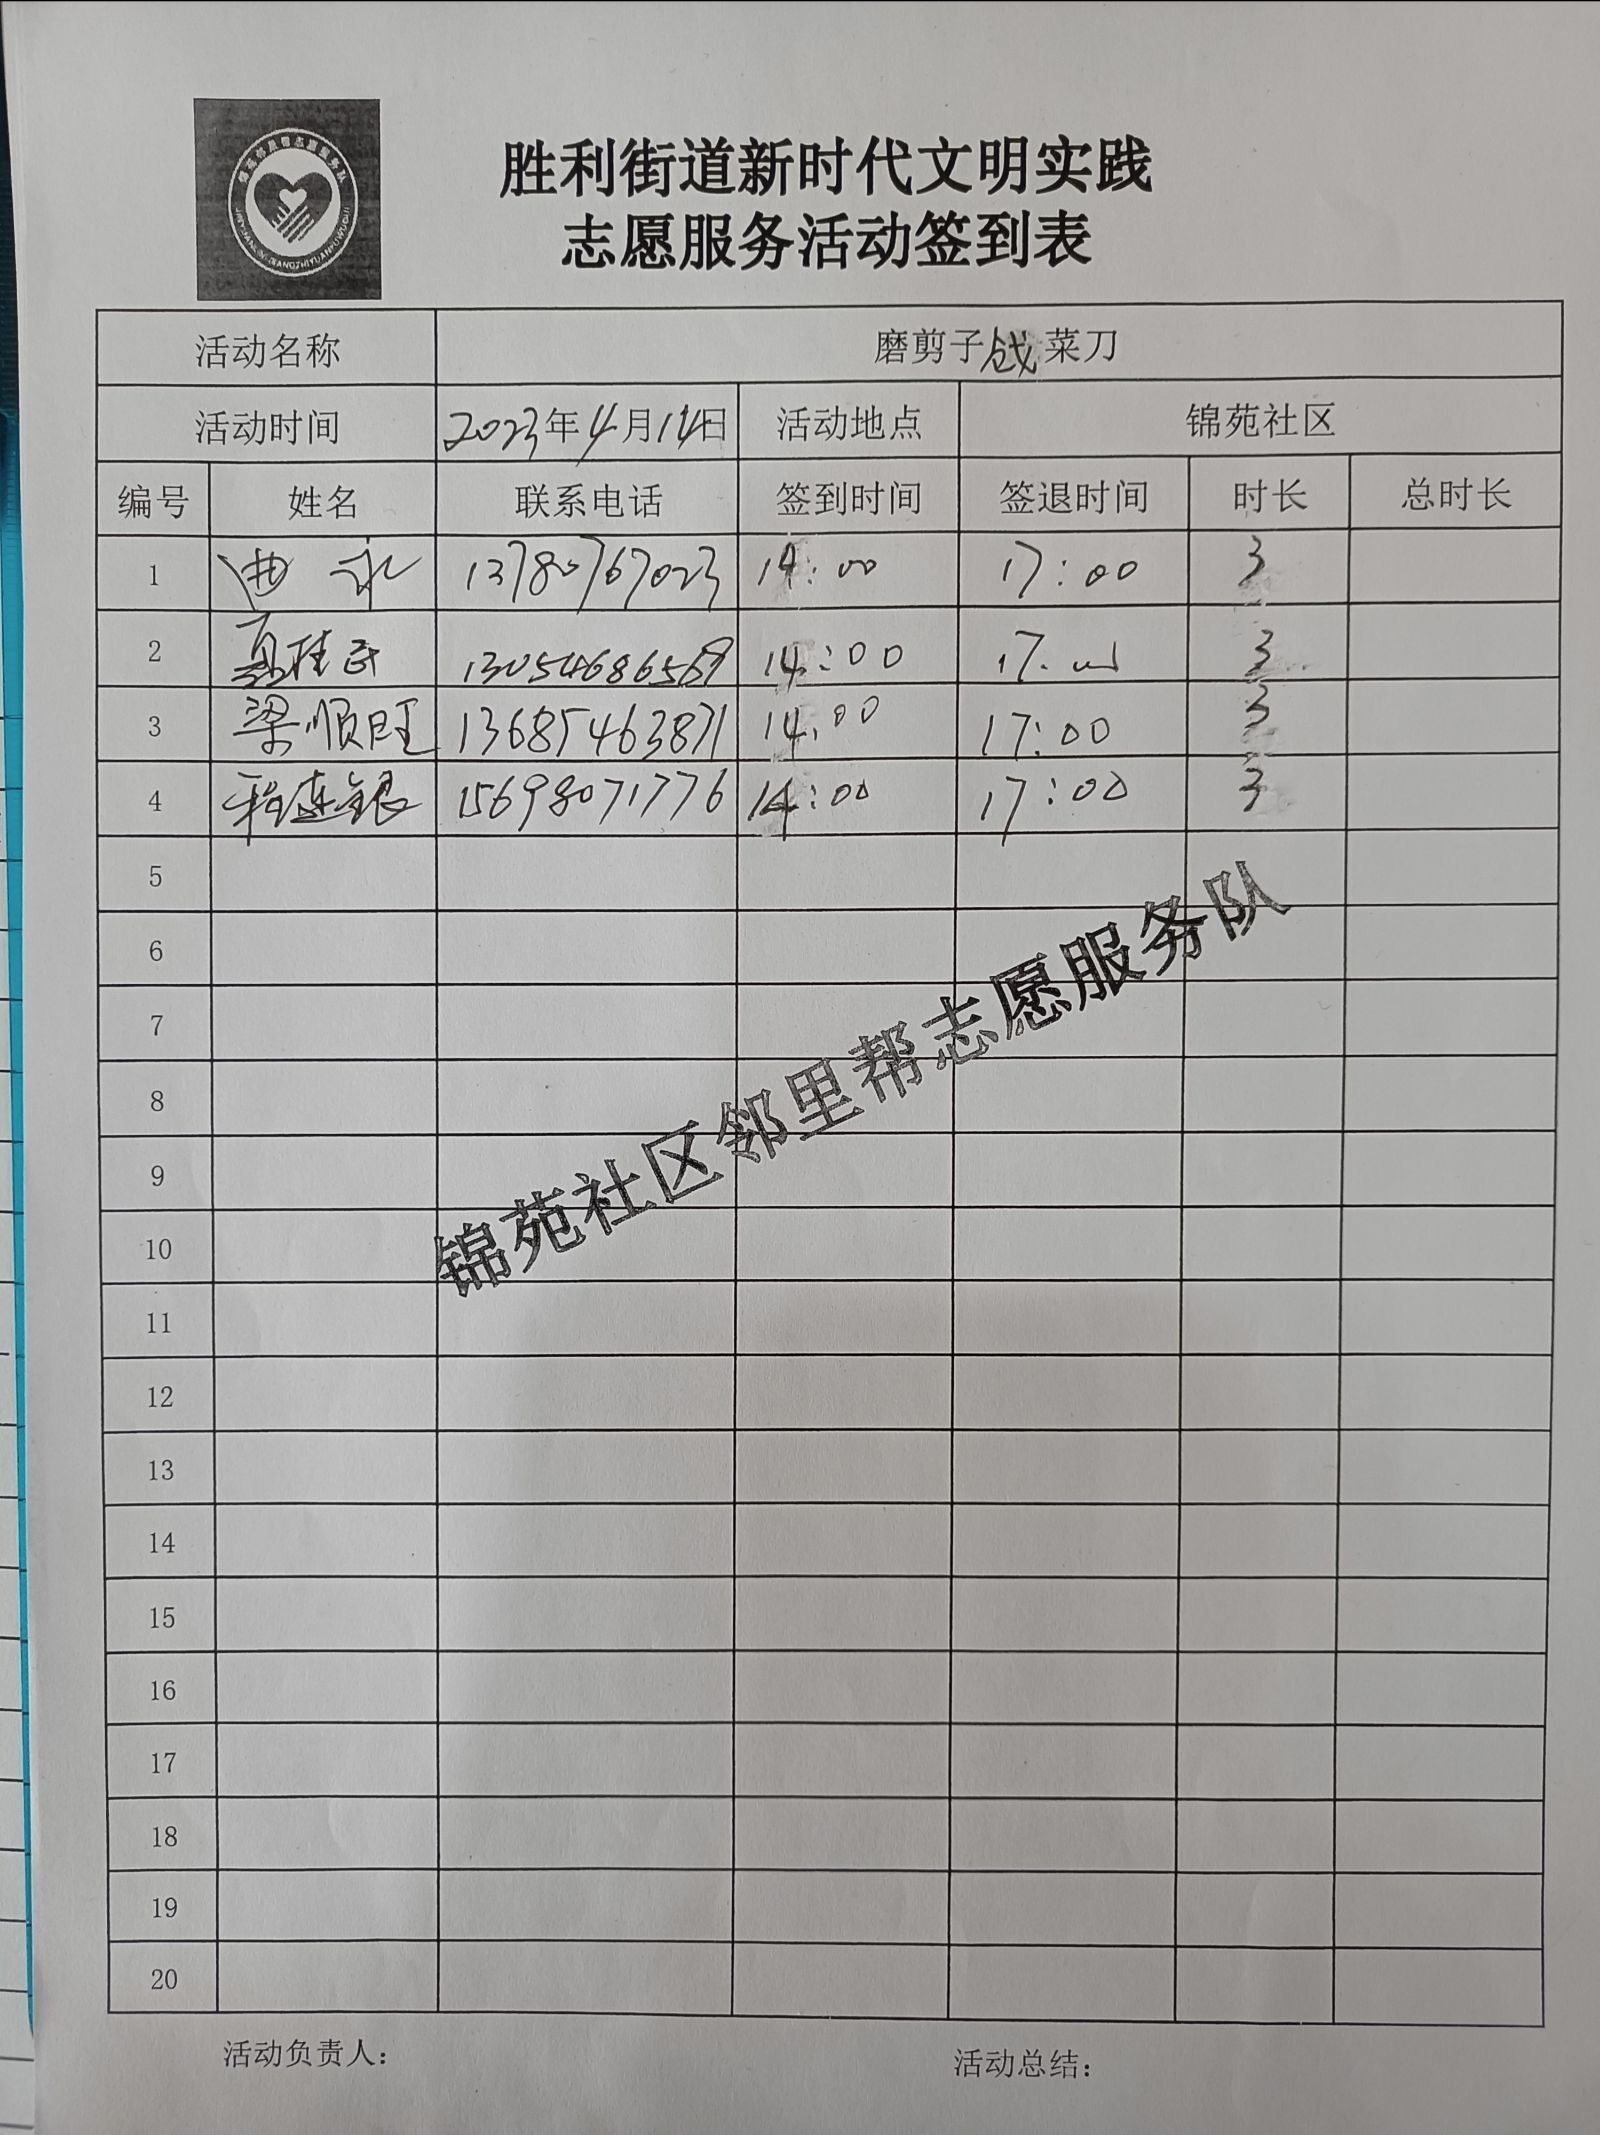 胜利街道新时代文明实践
志愿服务活动签到表
活动名称 磨剪子戗菜刀
活动时间 2023年4月14日 活动地点 锦苑社区
编号 姓名 联系电话 签到时间 签退时间 时长 总时长
1 曲永 13780767023 14:00 17:00 3
2 桂 13054686569 14:00 17: 3
3 梁顺旺 13685463871 14:00 17:00 3
4 程连银 15698071776 14:00 17:00 3
5
6
7
8
9
10
11
12
13
14
15
16
17
18
19
20
锦苑社区邻里帮志愿服务队
活动负责人： 活动总结：